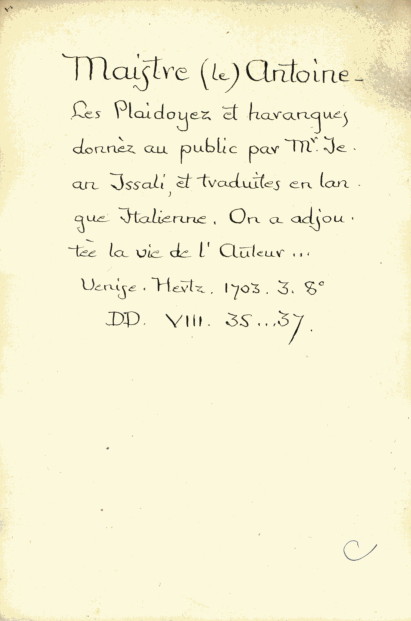 Maistre (le) Antoine -
Les Plaidoyez et harangues
donnèz au public par Mr. Je -
an Issali, et traduites en lan -
gue Italienne. On a adjou -
tèe la vie de l' Auteur ...
Venise. Hertz. 1703. 3. 8°
DD. VIII. 35...37.
C